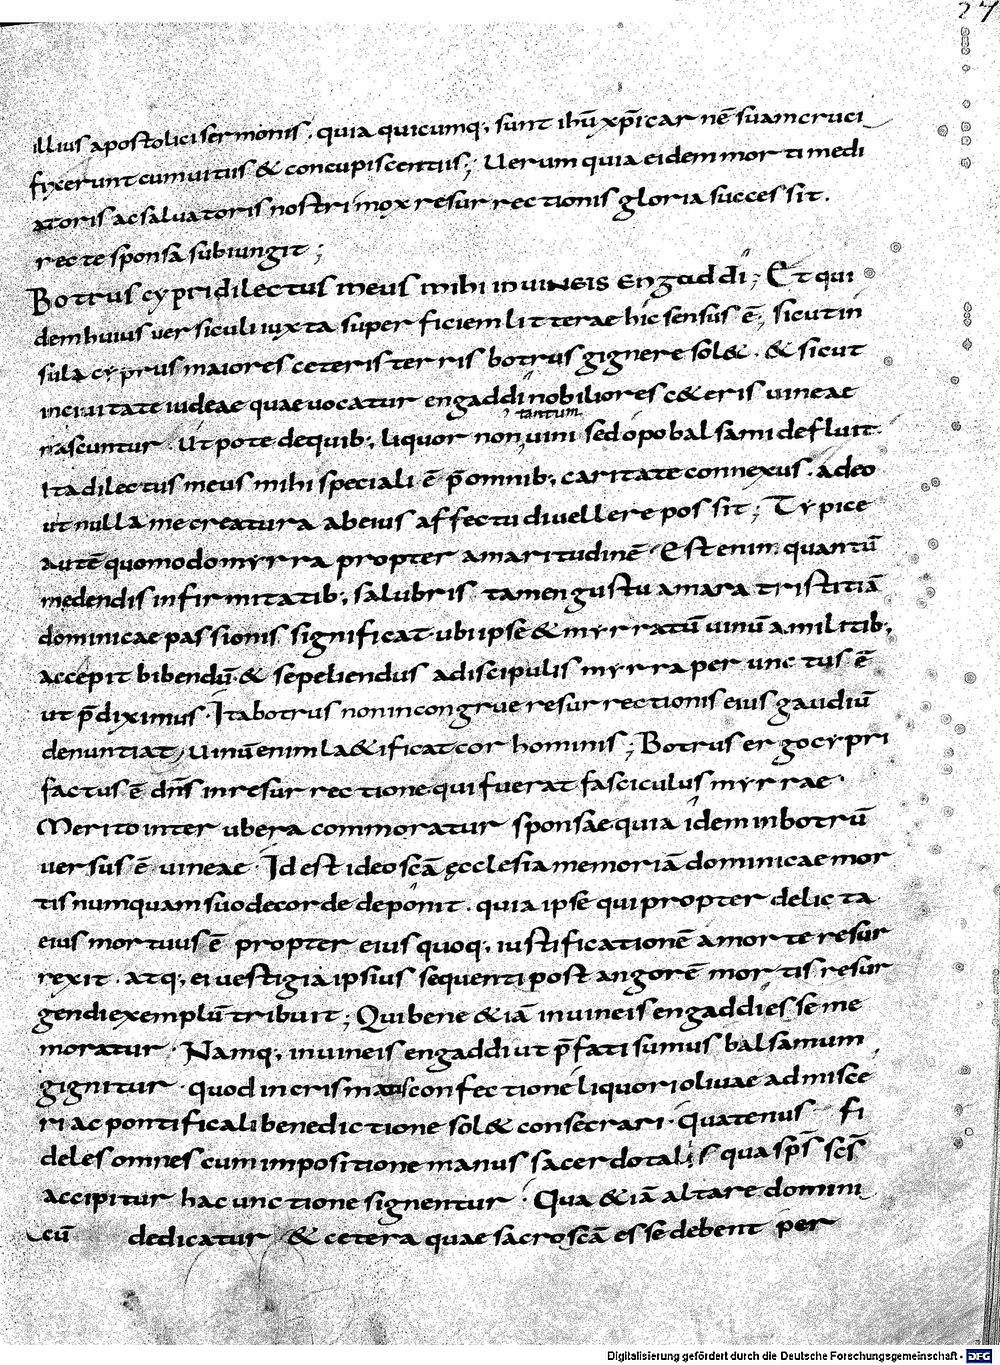 27
illius apostolici sermonis, quia quicumq; sunt ihū xp̄i carnē suam cruci
fixerunt cum uitiis & concupiscentiis; Uerum quia eidem morti medi
atoris ac saluatoris nostri mox resurrectionis gloria successit.
recte sponsa subiungit;
Botrus cypri dilectus meus mihi in uineis engaddi; Et qui
dem huius uersiculi iuxta superficiem litterae hic sensus ē; sicut in
sula cyprus maiores ceteris terris botrus gignere sol&. & sicut
in ciuitate iudeae quae uocatur engaddi nobiliores c&eris uineae
nascuntur. Utpote de quib; liquor non tantum uini sed opobalsami defluit.
Ita dilectus meus mihi speciali ē p̄ omnib; caritate connexus. adeo
ut nulla me creatura ab eius affectu diuellere possit; Typice
autē quomodo myrra propter amaritudinē Est enim quantū
medendis infirmitatib; salubris tamen gustu amara tristitiā
dominicae passionis significat. ubi ipse & myrratū uinū a militib;
accepit bibendū. & sepeliendus a discipulis myrra perunctus ē
ut p̄diximus. Ita botrus non incongrue resurrectionis eius gaudiū
denuntiat; uinū enim la&ificat cor hominis; Botrus ergo cypri
factus ē dn̄s in resurrectione qui fuerat fasciculus myrrae.
Merito inter ubera commoratur sponsae. quia idem in botrū
uersus ē uineae. Id est ideo scā ęcclesia memoriā dominicae mor
tis numquam suo de corde deponit. quia ipse qui propter delicta
eius mortuus ē propter eius quoq; iustificationē a morte resur
rexit. atq; ei uestigia ipsius sequenti post angorē mortis resur
gendi exemplū tribuit; Qui bene &iā in uineis engaddi esse me
moratur. Namq; in uineis engaddi ut p̄fati sumus balsamum
gignitur. quod in crismatis confectione liquori oliuae admisce
ri ac pontificali benedictione sol& consecrari. Quatenus fi
deles omnes cum impositione manus sacerdotalis qua sp̄s sc̄s
accipitur hac unctione signentur. Qua &iā altare domini
cū dedicatur & cetera quae sacroscā esse debent per
Digitalisierung gefördert durch die Deutsche Forschungsgemeinschaft - DFG